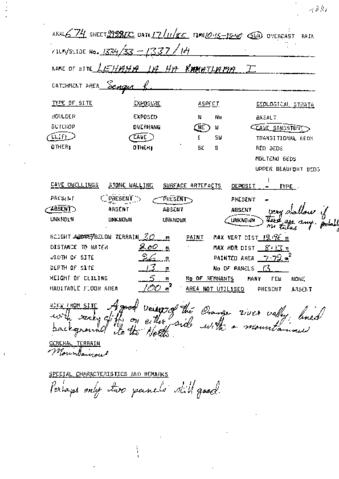 ARAL 674 SHEET 2929CC DATE 17/11/80 TIME 10:15-15:40 SUN OVERCAST RAIN
FILM/SLIDE No. 1334/33 - 1337/1A
NAME OF SITE LEHAHA LA HA RAMATLAMA I
CATCHMENT AREA Senqu R.
TYPE OF SITE EXPOSURE ASPECT GEOLOGICAL STRATA
BOULDER EXPOSED N NW BASALT
OUTCROP OVERHANG NE W CAVE SANDSTONE
CLIFF CAVE E SW TRANSITIONAL BEDS
OTHER: OTHER: SE S RED BEDS
MOLTENO BEDS
UPPER BEAUFORT BEDS
CAVE DWELLINGS STONE WALLING SURFACE ARTEFACTS DEPOSIT - TYPE
PRESENT PRESENT PRESENT PRESENT -
ABSENT ABSENT ABSENT ABSENT very shallow if
UNKNOWN UNKNOWN UNKNOWN UNKNOWN there are any, probably
HEIGHT ABOVE/BELOW TERRAIN 20 m PAINT MAX VERT DIST m
DISTANCE TO WATER 200 m MAX HOR DIST 8.13 m
WIDTH OF SITE 26 m PAINTED AREA 7.79 m²
DEPTH OF SITE 13 m No OF PANELS 13
HEIGHT OF CEILING 5 m No OF REMNANTS MANY FEW NONE
HABITABLE FLOOR AREA 100 m² AREA NOT UTILISED PRESENT ABSENT
VIEW FROM SITE A good view of the Orange river vally, lined
with rocky cliffs on either side with a mountainous
background to the North.
GENERAL TERRAIN
Mountainous
SPECIAL CHARACTERISTICS AND REMARKS
Perhaps only two panels still good.